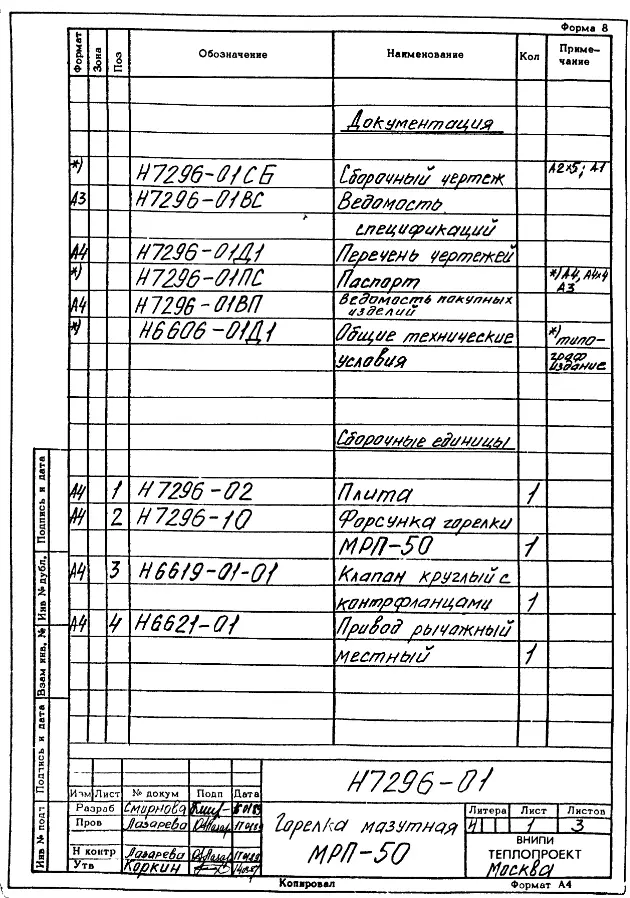 Форма 8
Формат Зона Поз Обозначение Наименование Кол Приме-
чание
Документация
*) Н7296-01СБ Сборочный чертеж А2×5; А1
А3 Н7296-01ВС Ведомость
спецификаций
А4 Н7296-01Д1 Перечень чертежей
*) Н7296-01ПС Паспорт *) А4, А4×4
А3
А4 Н7296-01ВП Ведомость покупных
изделий
*) Н6606-01Д1 Общие технические *) типо-
условия граф
издание
Сборочные единицы
А4 1 Н7296-02 Плита 1
А4 2 Н7296-10 Форсунка горелки
МРП-50 1
А4 3 Н6619-01-01 Клапан круглый с
контрфланцами 1
А4 4 Н6621-01 Привод рычажный
местный 1
Подпись и дата
Инв № дубл.
Взам инв. №
Подпись и дата
Инв № подп
Н7296-01
Изм Лист № докум Подп Дата
Разраб Смирнова
Пров Лазарева
Н контр Лазарева
Утв Коркин
Горелка мазутная
МРП-50
Литера Лист Листов
И 1 3
ВНИПИ
ТЕПЛОПРОЕКТ
Москва
Копировал Формат А4